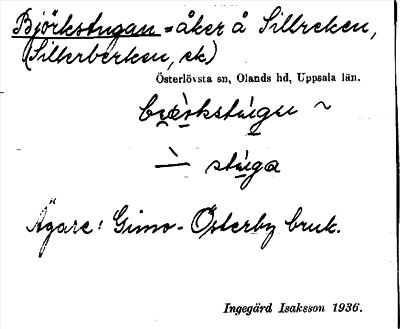 Björkstugan = åker å Sillreken,
(Sillerberken, ek)
Österlövsta sn, Olands hd, Uppsala län.
stu̇ga
Ägare: Gimo-Österby bruk.
Ingegärd Isaksson 1936.